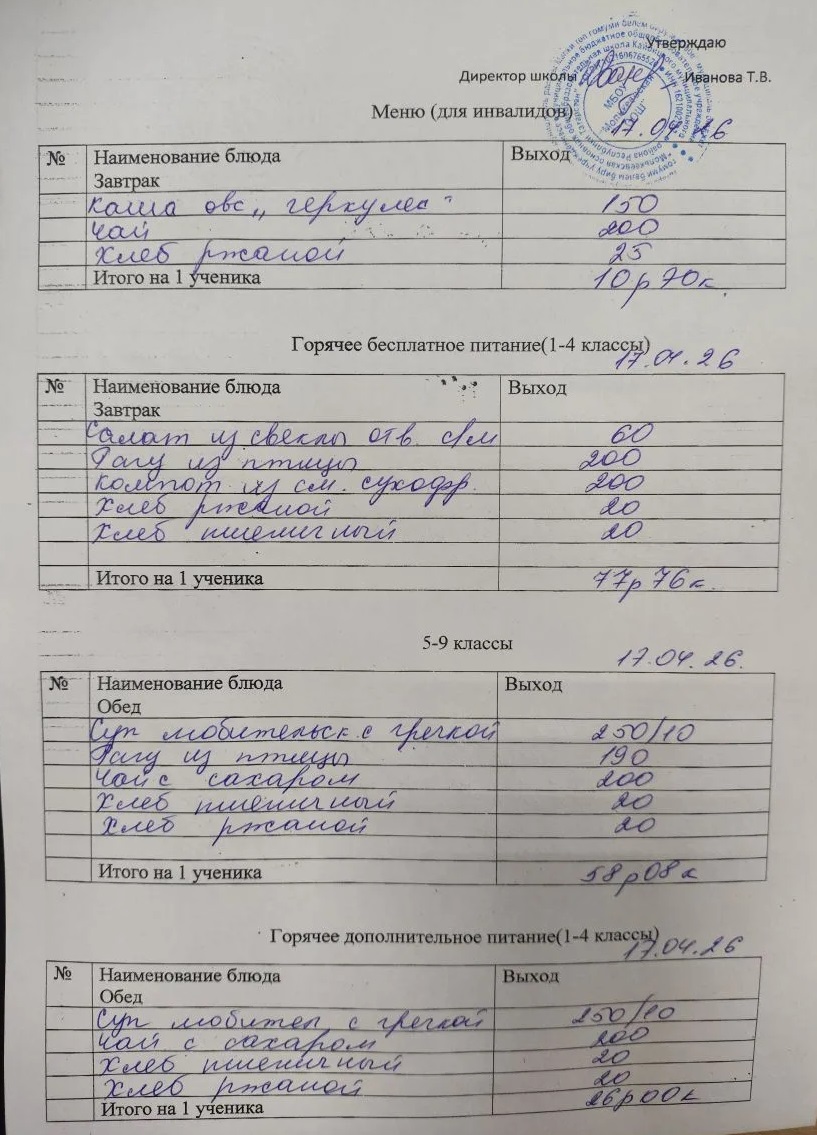 Утверждаю
Директор школы Иванова Т.В.
Меню (для инвалидов) 17.04.26
№ Наименование блюда Выход
Завтрак
Каша овс „геркулес" 150
Чай 200
Хлеб ржаной 25
Итого на 1 ученика 10р70к.
Горячее бесплатное питание(1-4 классы)
17.04.26
№ Наименование блюда Выход
Завтрак
Салат из свеклы отв. с/м 60
Рагу из птицы 200
Компот из см. сухофр. 200
Хлеб ржаной 20
Хлеб пшеничный 20
Итого на 1 ученика 77р76к.
5-9 классы 17.04.26.
№ Наименование блюда Выход
Обед
Суп любительск. с гречкой 250/10
Рагу из птицы 190
Чай с сахаром 200
Хлеб пшеничный 20
Хлеб ржаной 20
Итого на 1 ученика 58р08к
Горячее дополнительное питание(1-4 классы)
17.04.26
№ Наименование блюда Выход
Обед
Суп любител с гречкой 250/10
Чай с сахаром 200
Хлеб пшеничный 20
Хлеб ржаной 20
Итого на 1 ученика 26р00к